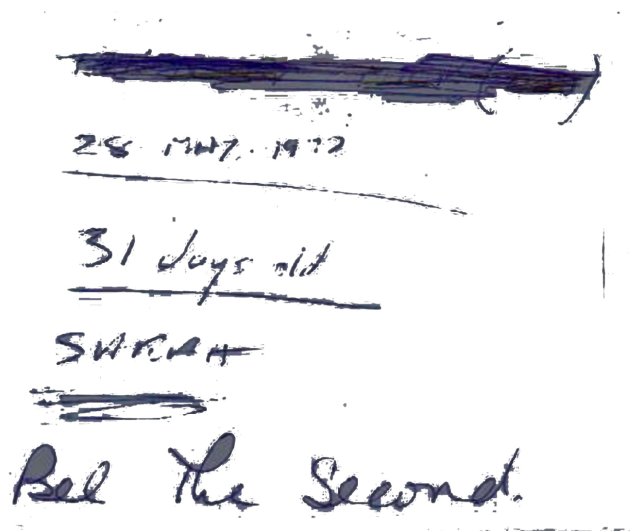 28 MAY. 1977
31 days old
Bel The Second.